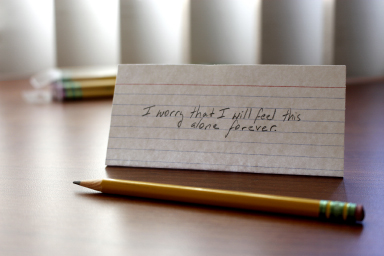 I worry that I will feel this
alone forever.